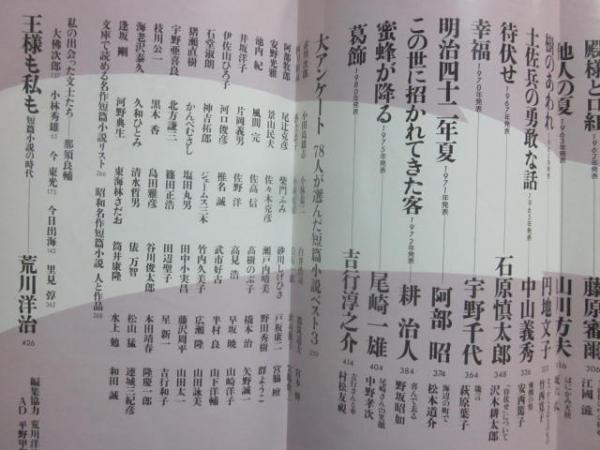 殿様と口紅 1962年発表 藤原審爾 306
他人の夏 1963年発表 山川方夫 316
はじかみ
土佐兵の勇敢な話 中山義秀 336
安西篤子
待伏せ 1967年発表 石原慎太郎 348
「待伏せ」について
沢木耕太郎
幸福 1970年発表 宇野千代 364
萩原葉子
明治四十二年夏 1971年発表 阿部昭 374
海辺の町で
松本道介
この世に招かれてきた客 1972年発表 耕治人 384
喜んで去る
野坂昭如
蜜蜂が降る 1975年発表 尾崎一雄 404
尾崎さんの笑顔
中野孝次
葛飾 1980年発表 吉行淳之介 414
村松友視
大アンケート 78人が選んだ短篇小説ベスト3
阿部牧郎 尾辻克彦 柴門ふみ 砂川しげひさ 戸板康二 宮脇檀
安野光雅 景山民夫 佐々木克彦 瀬戸内晴美 野田秀樹 群ようこ
池内紀 風間完 佐高信 高樹のぶ子 橋本治 矢野誠一
井坂洋子 片岡義男 佐野洋 高見浩 早坂暁 山崎洋子
伊佐山ひろ子 河口俊彦 椎名誠 武市好古 半村良 山下洋輔
石堂淑朗 神吉拓郎 ジェームス三木 竹内久美子 広瀬隆 山田詠美
猪瀬直樹 かんべむさし 塩田丸男 田中小実昌 藤沢周平 山田太一
宇野亜喜良 北方謙三 篠田正浩 田辺聖子 星新一 吉行和子
枝川公一 黒木香 島田雅彦 谷川俊太郎 本田靖春 隆慶一郎
海老沢泰久 久和ひとみ 清水哲男 俵万智 松山猛 連城三紀彦
逢坂剛 河野典生 東海林さだお 筒井康隆 水上勉 和田誠
文庫で読める名作短篇小説リスト 昭和名作短篇小説 人と作品
私の出会った文士たち 那須良輔
大佛次郎 小林秀雄 今東光 今日出海 里見弴
王様も私も 短篇小説の時代 荒川洋治 426
編集協力 荒川洋
AD 平野甲